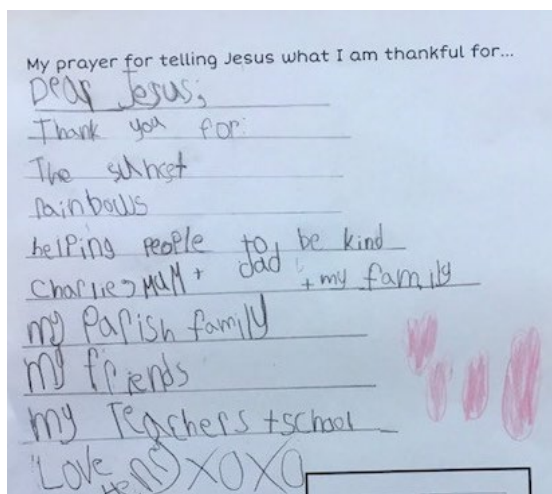 My prayer for telling Jesus what I am thankful for...
Dear Jesus,
Thank you for:
The sunset
rainbows
helping people to be kind
Charlie, mum + dad + my family
my Parish family
my friends
my Teachers + school
Love Henry XOXO